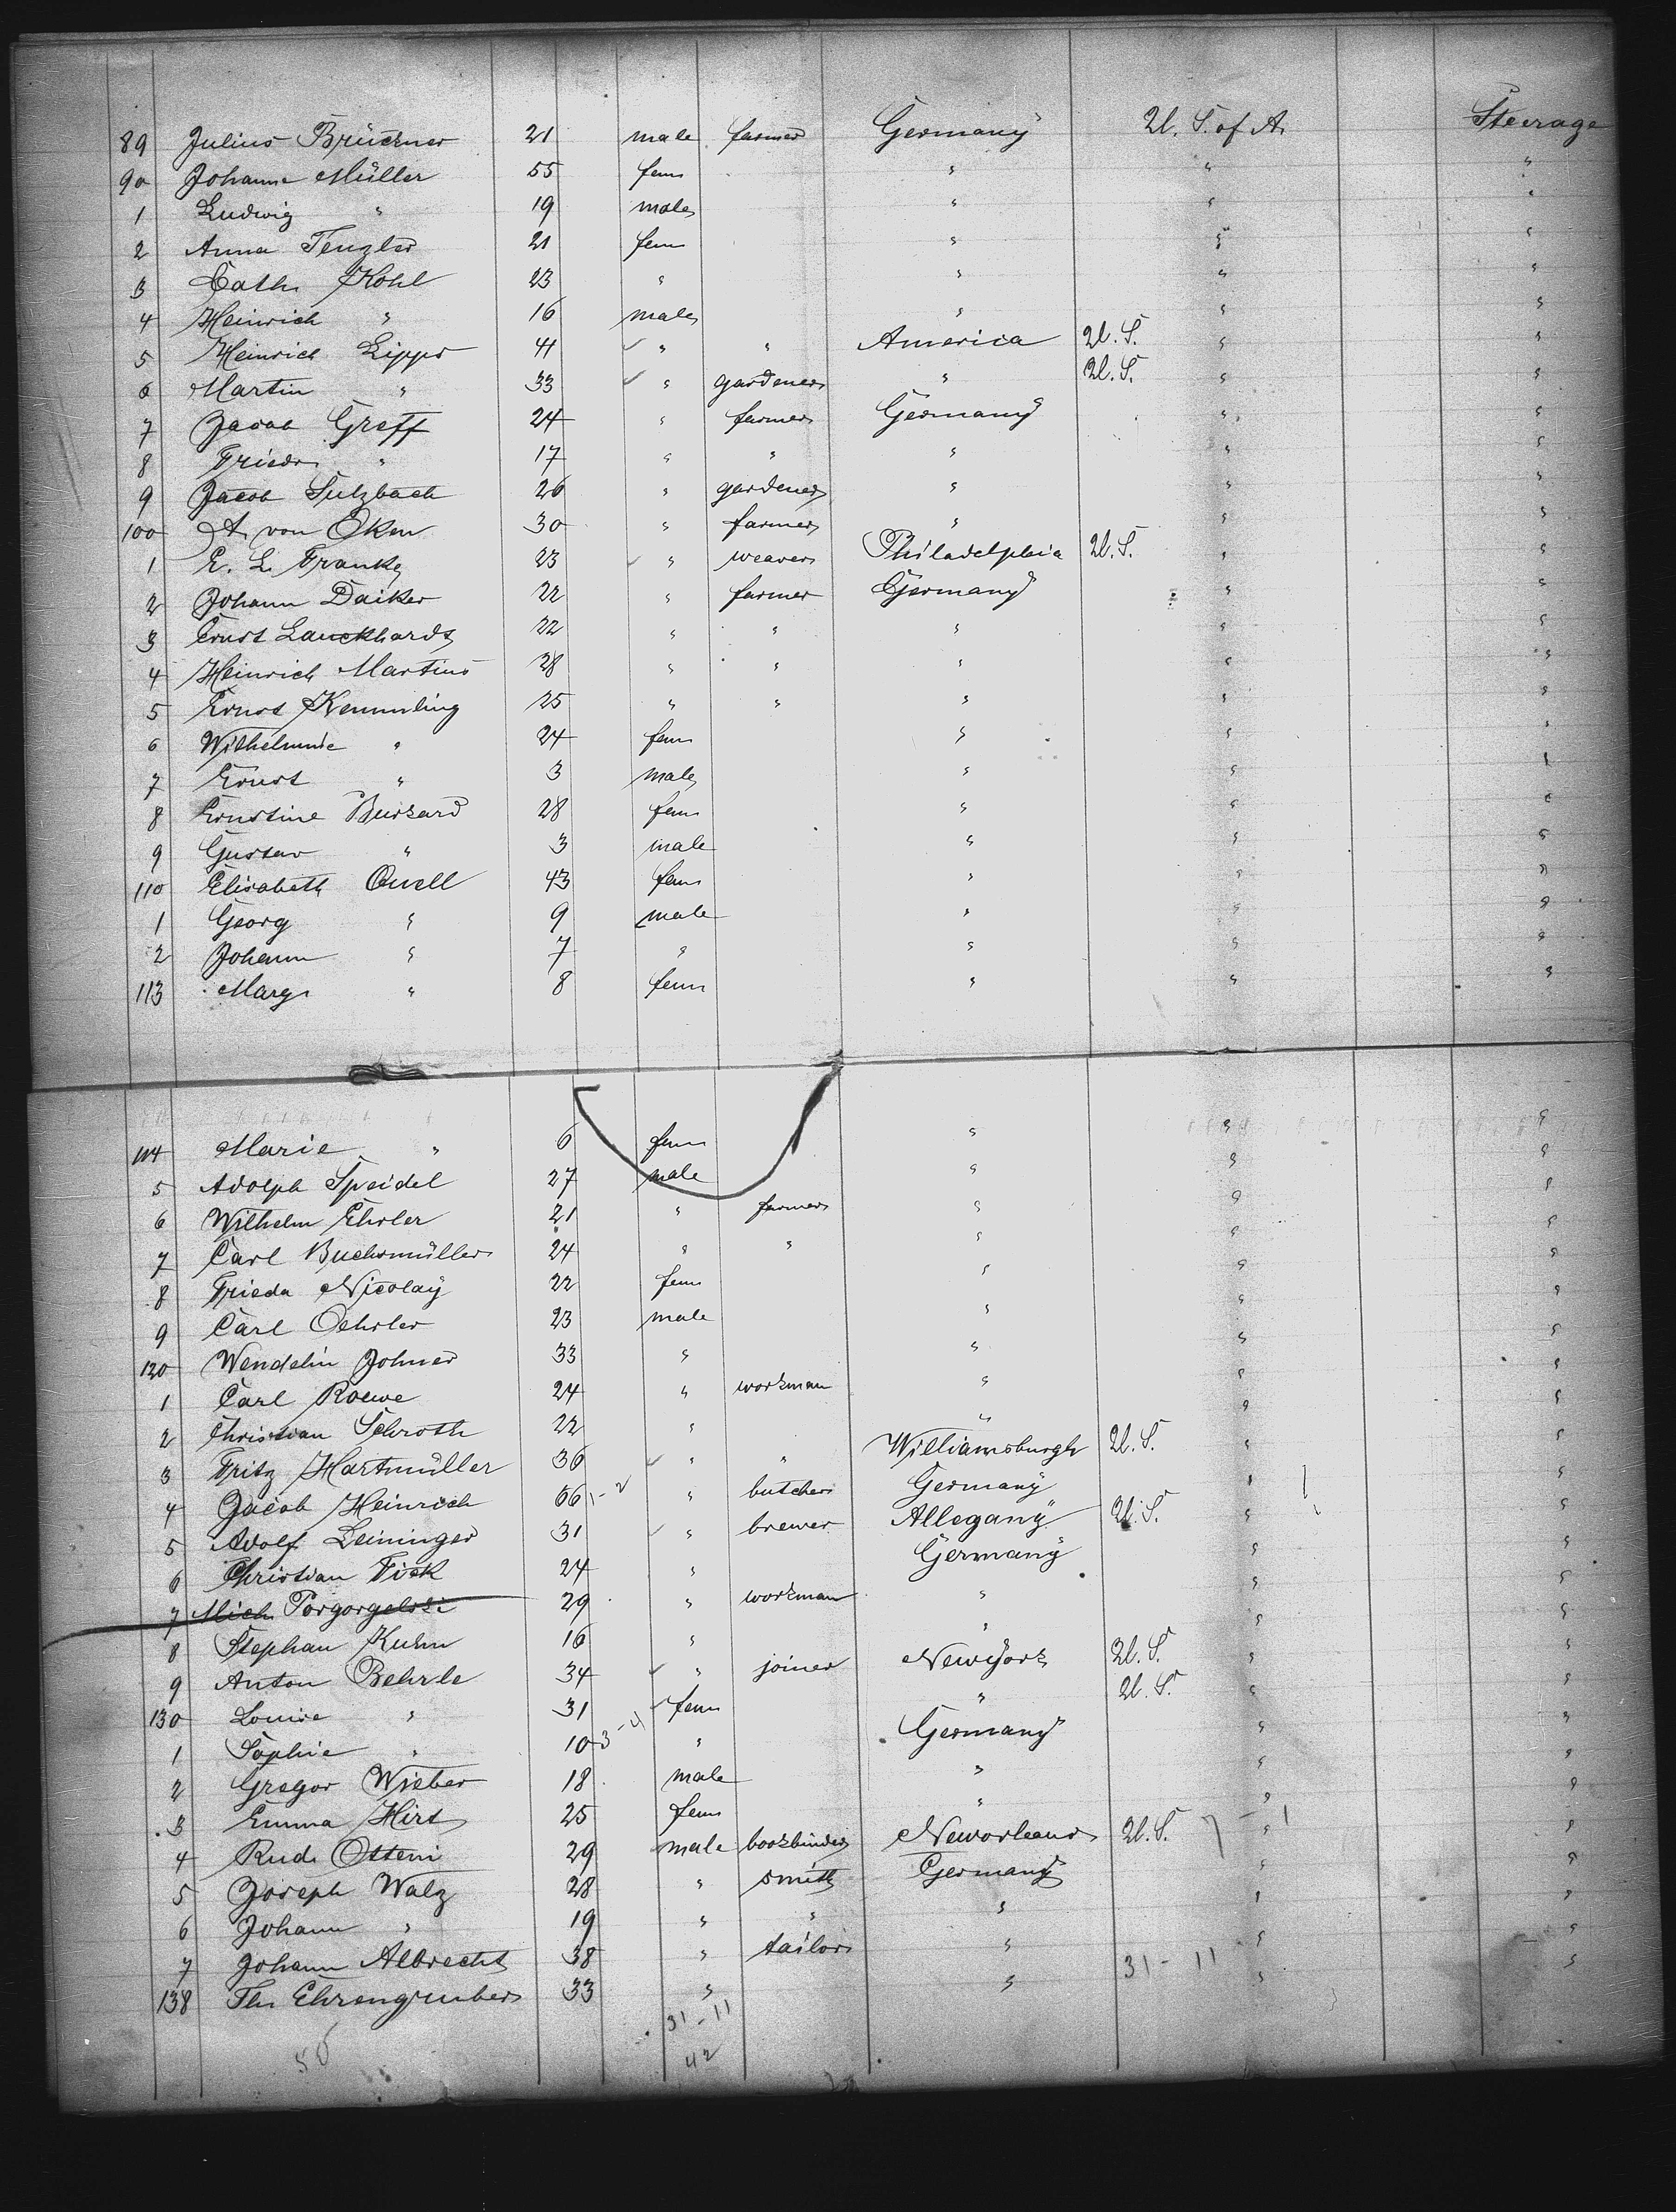 89 Julius Brückner 21 male farmer Germany U. S. of A. Steerage
90 Johanna Müller 55 fem " " "
1 Ludwig " 19 male " " "
2 Anna Tengler 21 fem " " "
3 Cath. Kohl 23 " " " "
4 Heinrich " 16 male " " "
5 Heinrich Lipps 41 ✓ " " America U. S. " "
6 Martin " 33 ✓ " gardener " U. S. " "
7 Jacob Greff 24 " farmer Germany " "
8 Friedr. " 17 " " " " "
9 Jacob Sulzbach 26 " gardener " " "
100 A. von Oken 30 " farmer " " "
1 E. L. Franke 23 ✓ " weaver Philadelphia U. S. " "
2 Johann Daiker 22 " farmer Germany " "
3 Ernst Lauckhardt 22 " " " " "
4 Heinrich Martins 28 " " " " "
5 Ernst Kemmling 25 " " " " "
6 Wilhelmine " 24 fem " " "
7 Ernst " 3 male " " "
8 Ernstine 28 fem " " "
9 Gustav " 3 male " " "
110 Elisabeth Quell 43 fem " " "
1 Georg " 9 male " " "
2 Johann " 7 " " " "
113 Marg. " 8 fem " " "
114 Marie " 6 fem " " "
5 Adolph Speidel 27 male " " "
6 Wilhelm Ehrler 21 " farmer " " "
7 Carl Buchsmüller 24 " " " " "
8 Frieda Nicolay 22 fem " " "
9 Carl Oehrler 23 male " " "
120 Wendelin Johner 33 " " " "
1 Carl Roewe 24 " workman " " "
2 Christian Schroth 22 " " " "
3 Fritz Hartmüller 36 ✓ " " Williamsburgh U. S. " "
4 Jacob Heinrich 66 1-2 " butcher Germany " "
5 Adolf Leininger 31 ✓ " brewer Allegany U. S. " "
6 Christian Fick 24 " Germany " "
7 Mich. Porgorgelski 29 " workman " " "
8 Stephan Kuhn 16 " " " "
9 Anton Behrle 34 ✓ " joiner Newyork U. S. " "
130 Louise " 31 ✓ fem " U. S. " "
1 Sophie " 10 3-4 " Germany " "
2 Gregor Wieber 18 male " " "
3 Emma Hirt 25 fem " " "
4 Rud. Otteni 29 male bookbinder Neworleans U. S. 7-1 " "
5 Joseph Walz 28 " smith Germany " "
6 Johann " 19 " " " " "
7 Johann Albrecht 38 " tailor " " "
138 Th. Ehrengruber 33 " " 31-11 " "
31-11
50 42